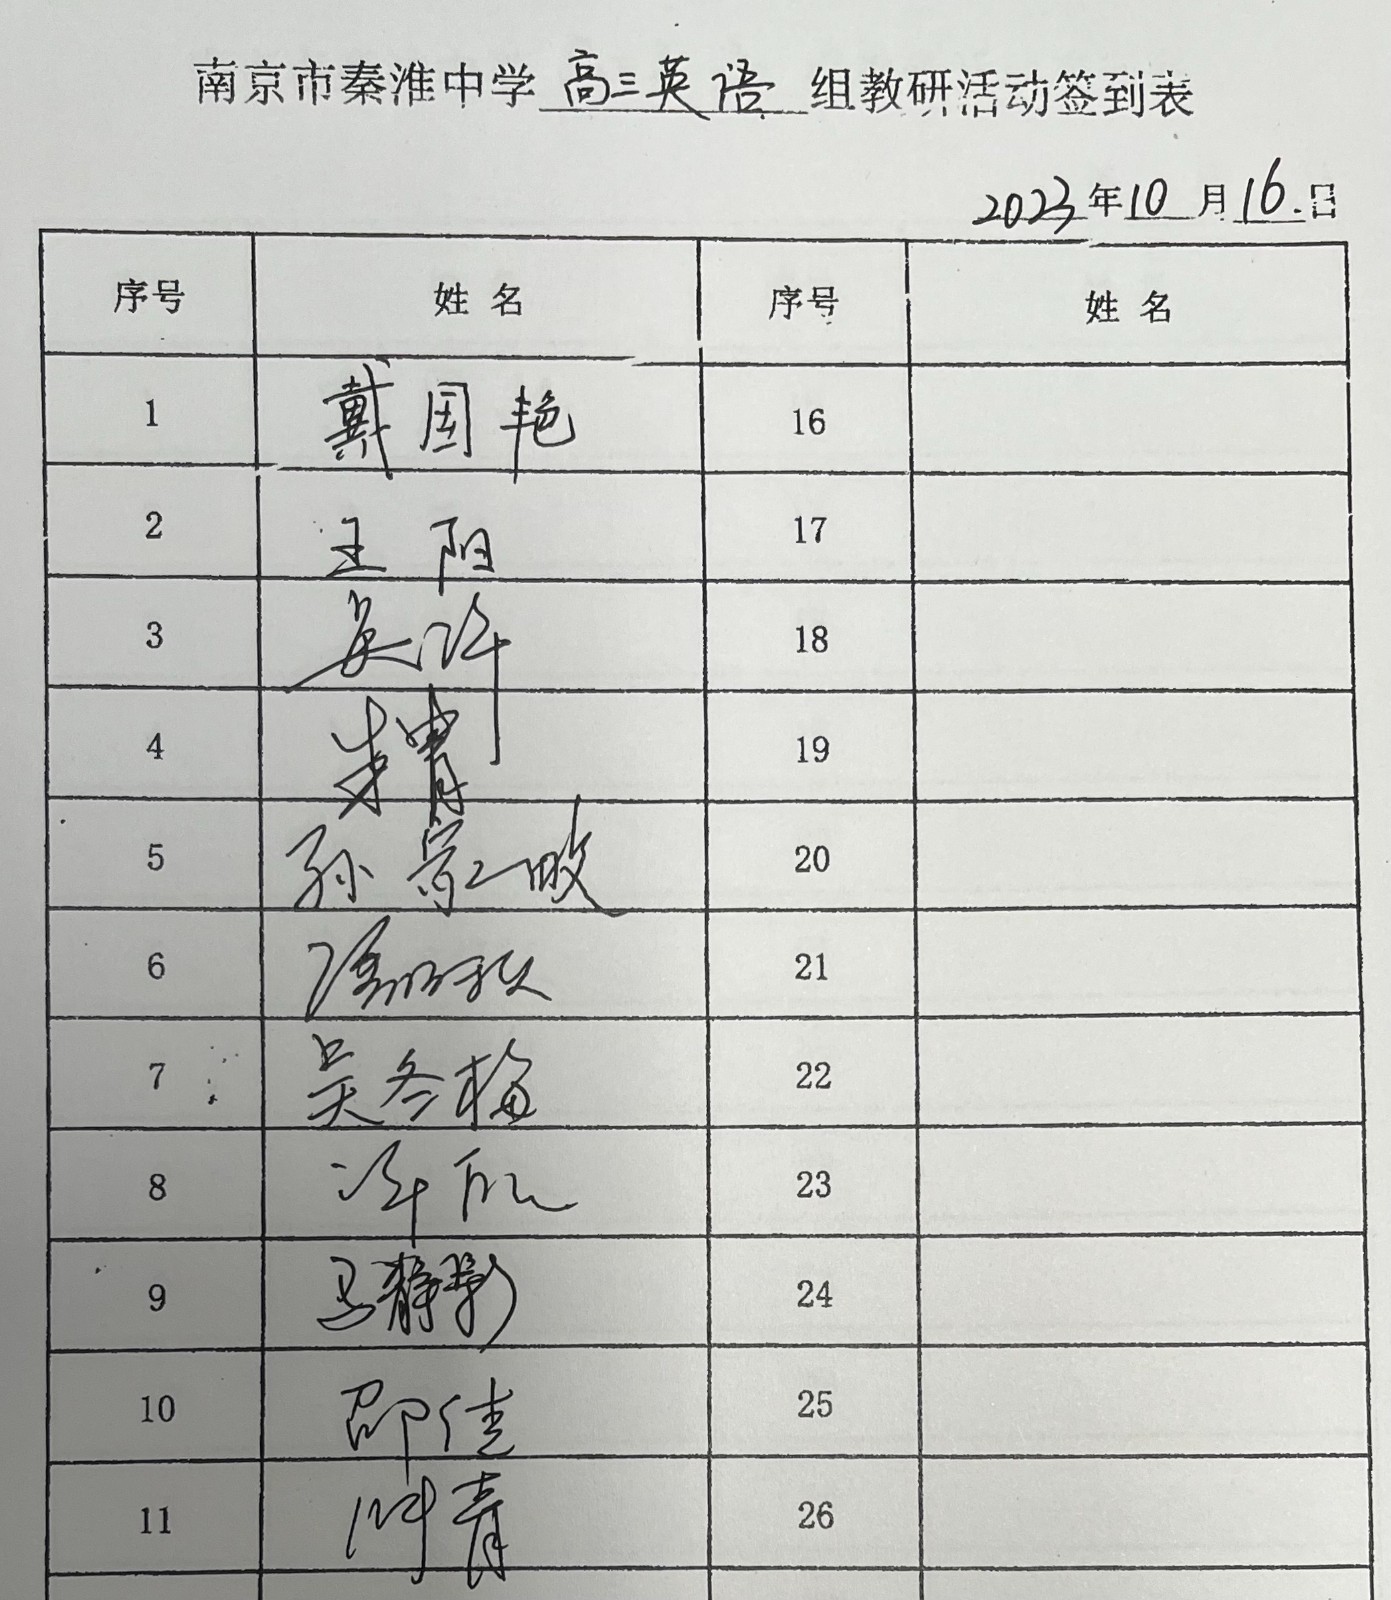 南京市秦淮中学 高三英语 组教研活动签到表
2023年10月16日
序号 姓名 序号 姓名
1 戴国艳 16
2 王阳 17
3 吴许 18
4 朱胄 19
5 孙 20
6 21
7 吴冬梅 22
8 23
9 马静影 24
10 邵佳 25
11 帅青 26